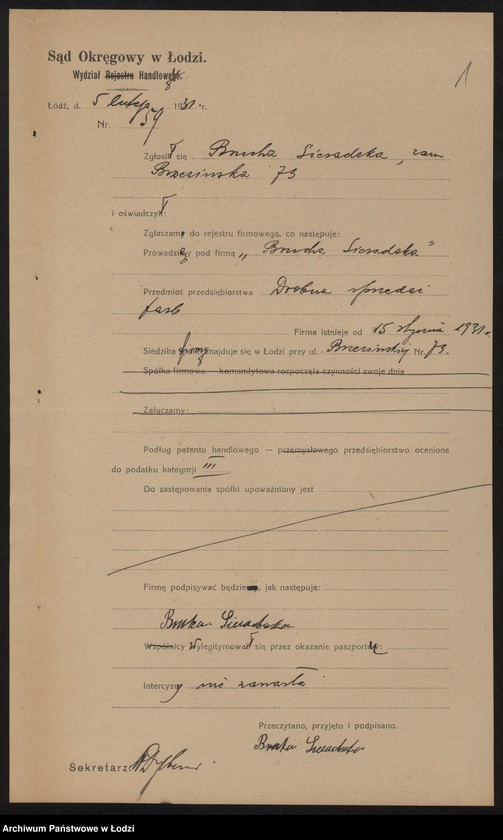 Sąd Okręgowy w Łodzi.
1
Wydział Rejestru Handlowego.
Łódź, d. 5 lutego 1931 r.
Nr. 59
Zgłosił się Brucha Sieradzka, zam
Brzezińska 73
i oświadczył
Zgłaszam do rejestru firmowego, co następuje:
Prowadzę pod firmą „Brucha Sieradzka"
Przedmiot przedsiębiorstwa Drobna sprzedaż
farb
Firma istnieje od 15 stycznia 1931 r.
Siedziba firmy znajduje się w Łodzi przy ul. Brzezińskiej Nr. 73.
Spółka firmowa — komandytowa rozpoczęła czynności swoje dnia
Załączamy:
Podług patentu handlowego — przemysłowego przedsiębiorstwo ocenione
do podatku kategorji III
Do zastępowania spółki upoważniony jest
Firmę podpisywać będzie, jak następuje:
Bruka Sieradzka
Wspólnicy wylegitymowali się przez okazanie paszportów:
Intercyzy nie zawarła
Przeczytano, przyjęto i podpisano.
Bruka Sieradzka
Sekretarz:
Archiwum Państwowe w Łodzi